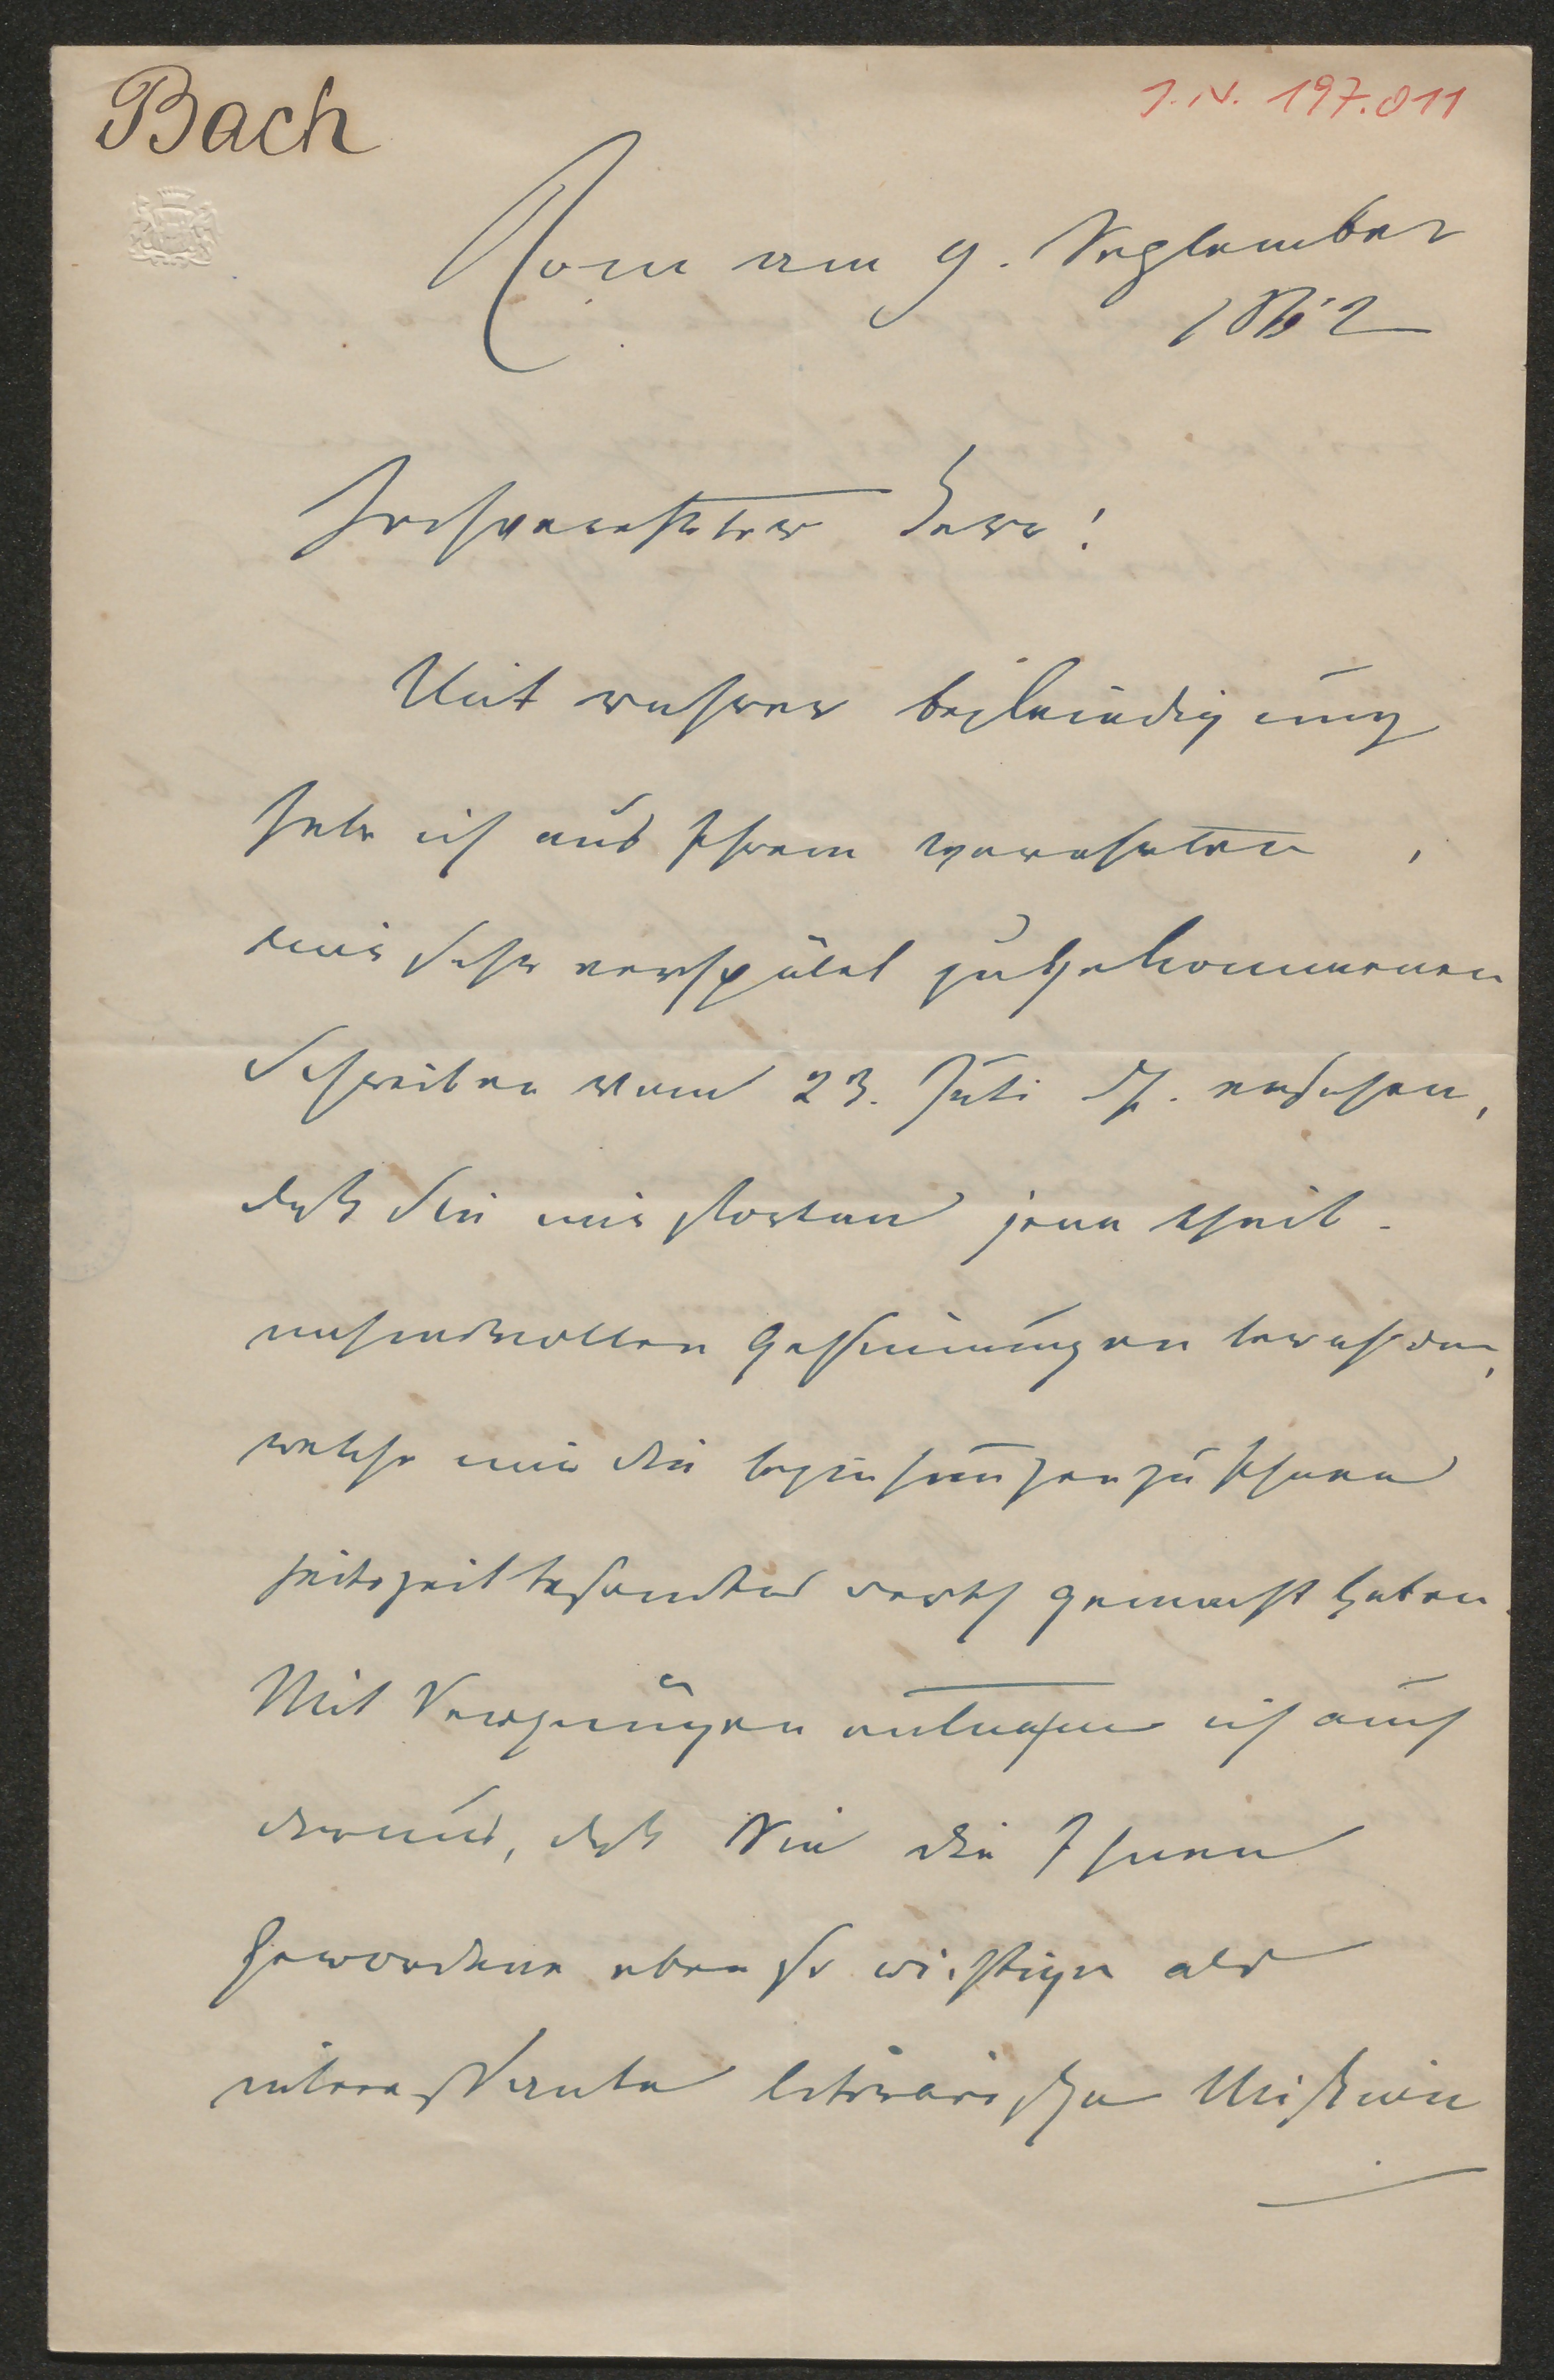 Bach
I.N. 197.011
Rom am 9. September
1862
Hochverehrter Herr!
Mit wahrer Befriedigung
habe ich aus Ihrem verehrten,
mir sehr verspätet zugekommenen
Schreiben vom 23. Juli d. J. ersehen,
daß Sie mir fortan jene theil-
nahmsvollen Gesinnungen bewahren,
welche mir die Beziehungen zu Ihnen
jederzeit besonders werth gemacht haben.
Mit Vergnügen entnahm ich auch
daraus, daß Sie die Ihnen
gewordene eben so wichtige als
interessante literarische Mission